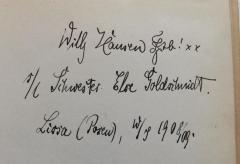 Willy Hansen
s/l Schwester Else Goldschmidt.
Lissa (Posen), W/S 1908/09.